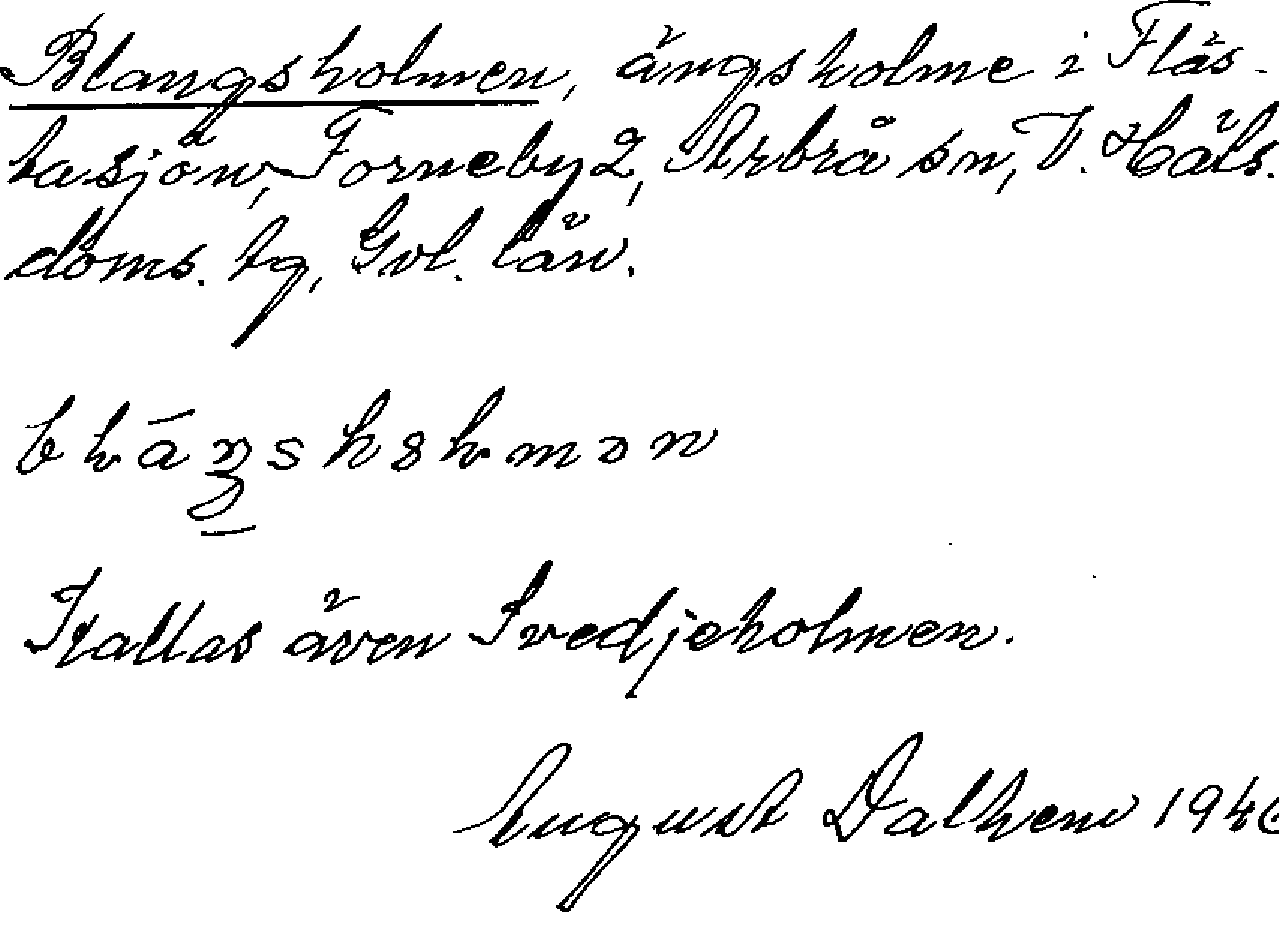 Blangsholmen, ängsholme i Fläs-
tasjön, Forneby 2, Arbrå sn, V. Häls.
doms. tg, Gvl. län.
Kallas även Svedjeholmen.
August Dalhem 194